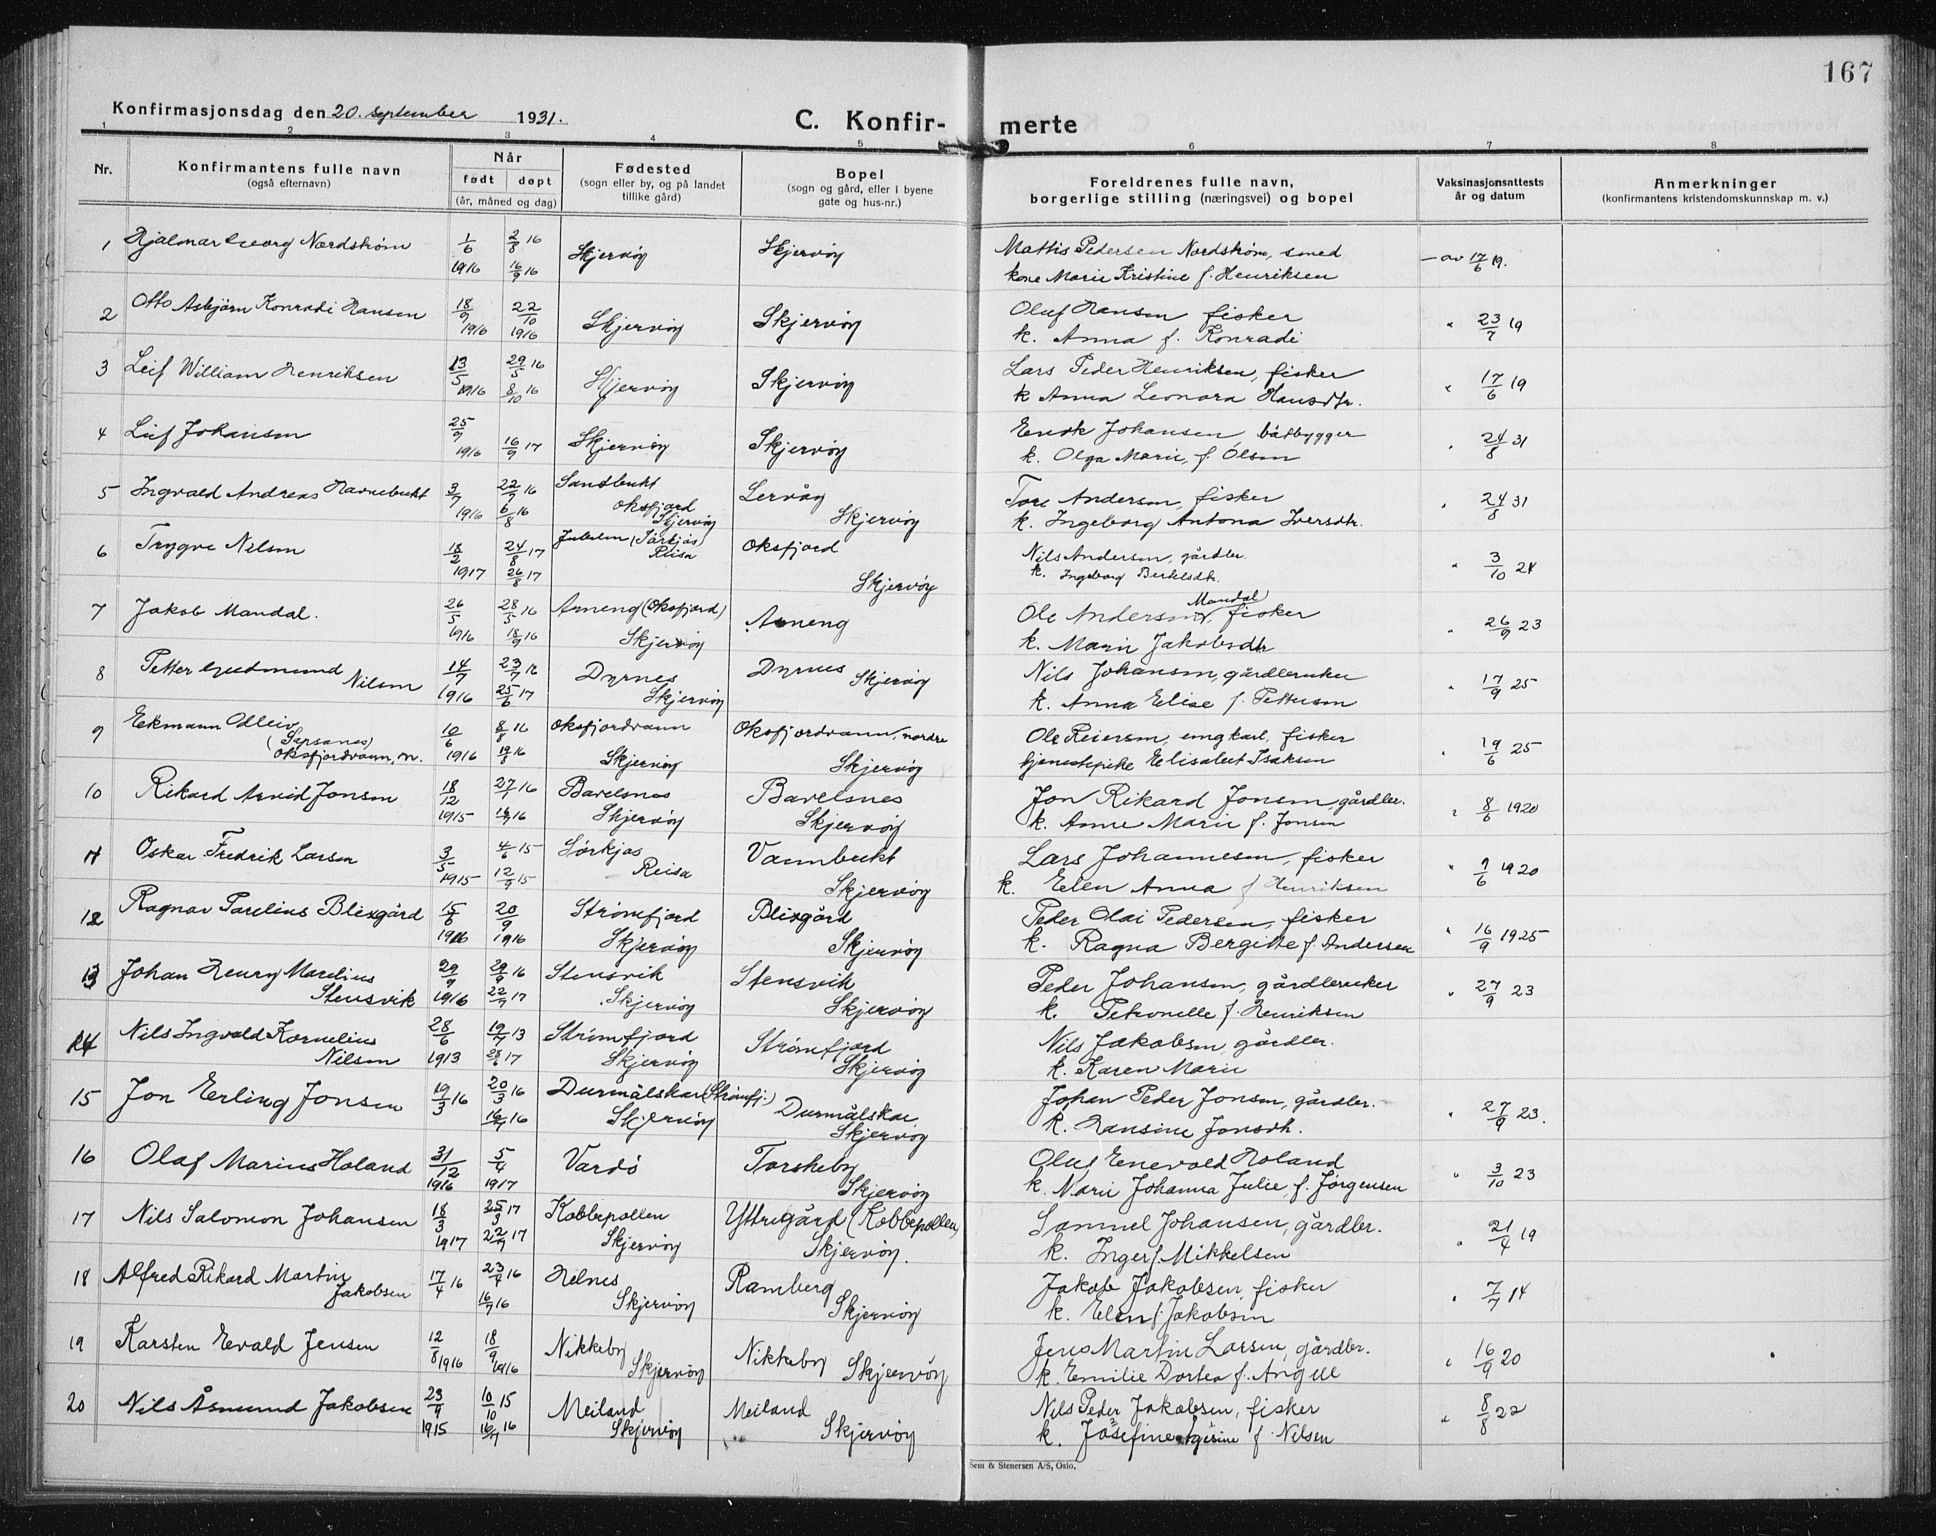 167
Konfirmasjonsdag den 20. september 1931.
C. Konfir- merte
1 2 3 4 5 6 7 8
Nr.
Konfirmantens fulle navn
(også efternavn)
Når
født døpt
(år, måned og dag)
Fødested
(sogn eller by, og på landet
tillike gård)
Bopel
(sogn og gård, eller i byene
gate og hus-nr.)
Foreldrenes fulle navn,
borgerlige stilling (næringsvei) og bopel
Vaksinasjonsattests
år og datum
Anmerkninger
(konfirmantens kristendomskunnskap m. v.)
1 Hjalmar Georg Nordstrøm 1/6 2/8 16 Skjervöy Skjervöy Mattis Pedersen Nordstrøm, smed — av 17/6 19.
1916 16/9 16 kone Marie Kristine f. Henriksen
2 Otto Asbjörn Konradi Hansen 18/9 22/10 Skjervöy Skjervöy Oluf Hansen fisker " 23/7 19
1916 1916 k. Anna f. Konradi
3 Leif William Henriksen 13/5 29/5 16 Skjervöy Skjervöy Lars Peder Henriksen, fisker " 17/6 19
1916 8/10 16 k Anna Leonora Hansdtr.
4 Leif Johansen 25/9 Skjervöy Skjervöy Enok Johansen, båtbygger " 24/8 31
1916 16/9 17 k. Olga Marie, f. Olsen
5 Ingvald Andreas Havnebukt 3/7 22/7 16 Sandbukt Lervåg Tore Andersen, fisker " 24/8 31
1916 6/8 16 Oksfjord Skjervöy Skjervöy k. Ingeborg Antona Iversdtr.
6 Trygve Nilsen 18/2 24/8 17 (Sörkjos) Reisa Oksfjord Nils Andersen, gårdbr. " 3/10 24
1917 26/8 17 Skjervöy k. Ingeborg Bertelsdtr.
7 Jakob Mandal. 26/5 28/5 16 Arneng (Oksfjord) Arneng Ole Andersen Mandal, fisker " 26/9 23
1916 18/9 16 Skjervöy k. Marie Jakobsdtr
8 Petter Gudmund Nilsen 14/7 23/7 16 Dyrnes Dyrnes Skjervöy Nils Johansen, gårdbruker " 17/9 25
1916 25/6 17 Skjervöy k. Anna Elise f. Pettersen
9 Eckmann Odleiv 10/6 8/8 16 Oksfjordvann Oksfjordvann, nordre Ole Reiersen, ungkarl, fisker " 19/6 25
(Sapsanes)
Oksfjordvann, n. 1916 19/8 16 Skjervöy Skjervöy tjenestepike Elisabet Isaksen
10 Rikard Arvid Jonsen 18/12 27/1 16 Bavelsnes Bavelsnes Jon Rikard Jonsen, gårdbr. " 8/6 1920
1915 16/7 16 Skjervöy Skjervöy k. Anne Marie f. Jonsen
11 Oskar Fredrik Larsen 3/5 4/6 15 Sörkjos Vannbukt Lars Johannesen, fisker " 9/6 1920
1915 12/9 15 Reisa Skjervöy k. Elen Anna f Henriksen
12 Ragnar Parelius Blixgård 15/6 20/9 Strömfjord Blixgård Peder Olai Pedersen, fisker " 16/9 1925
1916 1916 Skjervöy Skjervöy k. Ragna Bergitte f. Andersen
13 Johan Henry Marelius 29/9 29/9 16 Stensvik Stensvik Peder Johansen, gårdbruker " 27/9 23
Stensvik 1916 22/7 17 Skjervöy Skjervöy k. Petronelle f. Henriksen
14 Nils Ingvald Kornelius 28/6 19/7 13 Strömfjord Strömfjord Nils Jakobsen, gårdbr.
Nilsen 1913 28/6 17 Skjervöy Skjervöy k. Karen Marie
15 Jon Erling Jonsen 19/3 16 20/3 16 Durmålskar (Strömfj.) Durmålskar Johan Peder Jonsen, gårdbr. " 27/9 23.
16/7 16 Skjervöy Skjervöy k. Hansine Jonsdtr.
16 Olaf Marius Holand 31/12 5/4 Vardö Torskeby Oluf Enevold Holand " 3/10 23
1916 1917 Skjervöy k. Marie Johanna Julie, f. Jörgensen
17 Nils Salomon Johansen 18/3 25/3 17 Kobbepollen Yttregård (Kobbepollen) Samuel Johansen, gårdbr. " 21/4 19
1917 22/7 17 Skjervöy Skjervöy. k. Inger f. Mikkelsen
18 Alfred Rikard Martin 17/4 16 23/4 16 Helnes Ramberg Jakob Jakobsen, fisker " 7/7 14
Jakobsen 16/7 16 Skjervöy Skjervöy k. Elen f. Jakobsen
19 Karsten Evald Jensen 12/8 18/9 Nikkeby Nikkeby Jens Martin Larsen, gårdbr. " 16/9 20
1916 1916 Skjervöy Skjervöy k. Emilie Dortea f. Angell
20 Nils Åsmund Jakobsen 23/9 10/10 15 Meiland Meiland Nils Peder Jakobsen, fisker " 8/8 22
1915 16/7 16 Skjervöy Skjervöy k. Josefine f. Nilsen
Sem & Stenersen A/S, Oslo.